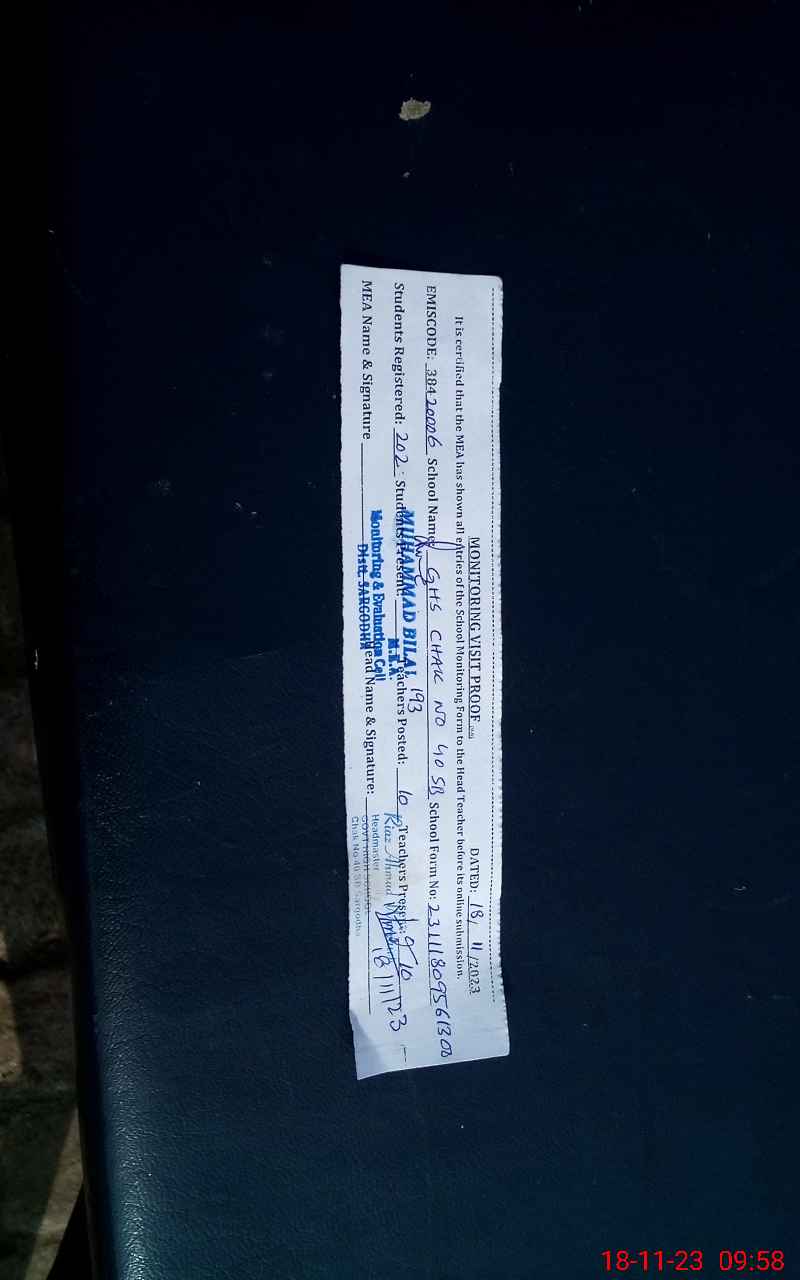 MONITORING VISIT PROOF DATED: 18/11/2023
It is certified that the MEA has shown all entries of the School Monitoring Form to the Head Teacher before its online submission.
EMISCODE: 38420006 School Name: GHS CHAK NO 40 SB School Form No:
Students Registered: 202 Students Present: 193 Teachers Posted: 10 Teachers Present: 10
MEA Name & Signature Head Name & Signature:
MUHAMMAD BILAL
M.E.A.
Monitoring & Evaluation Cell
Distt. SARGODHA
Riaz Ahmad
18/11/23
Headmaster
GOVT HIGH SCHOOL
Chak No 40 SB Sargodha
18-11-23 09:58